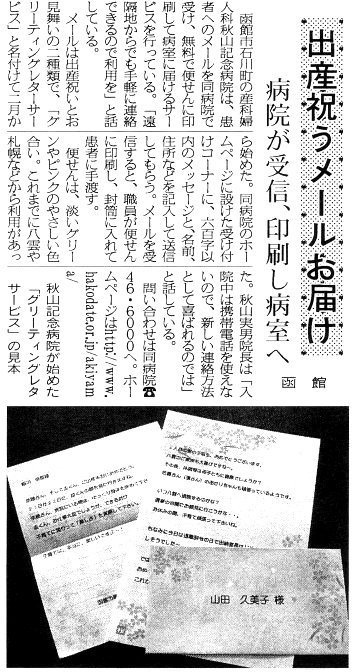 出産祝うメールお届け
病院が受信、印刷し病室へ
函館
函館市石川町の産科婦
人科秋山記念病院は、患
者へのメールを同病院で
受け、無料で便せんに印
刷して病室に届けるサー
ビスを行っている。「遠
隔地からでも手軽に連絡
できるので利用を」と話
している。
メールは出産祝いとお
見舞いの二種類で、「グ
リーティングレターサー
ビス」と名付けて二月か
ら始めた。同病院のホー
ムページに設けた受け付
けコーナーに、六百字以
内のメッセージと、名前、
住所などを記入して送信
してもらう。メールを受
信すると、職員が便せん
に印刷し、封筒に入れて
患者に手渡す。
便せんは、淡いグリー
ンやピンクのやさしい色
合い。これまでに八雲や
札幌などから利用があっ
た。秋山実男院長は「入
院中は携帯電話を使えな
いので、新しい連絡方法
として喜ばれるのでは」
と話している。
問い合わせは同病院☎
46・6000へ。ホー
ムページはhttp//www.
hakodate.or.jp/akiyam
a/
秋山記念病院が始めた
「グリーティングレター
サービス」の見本
山田 久美子 様